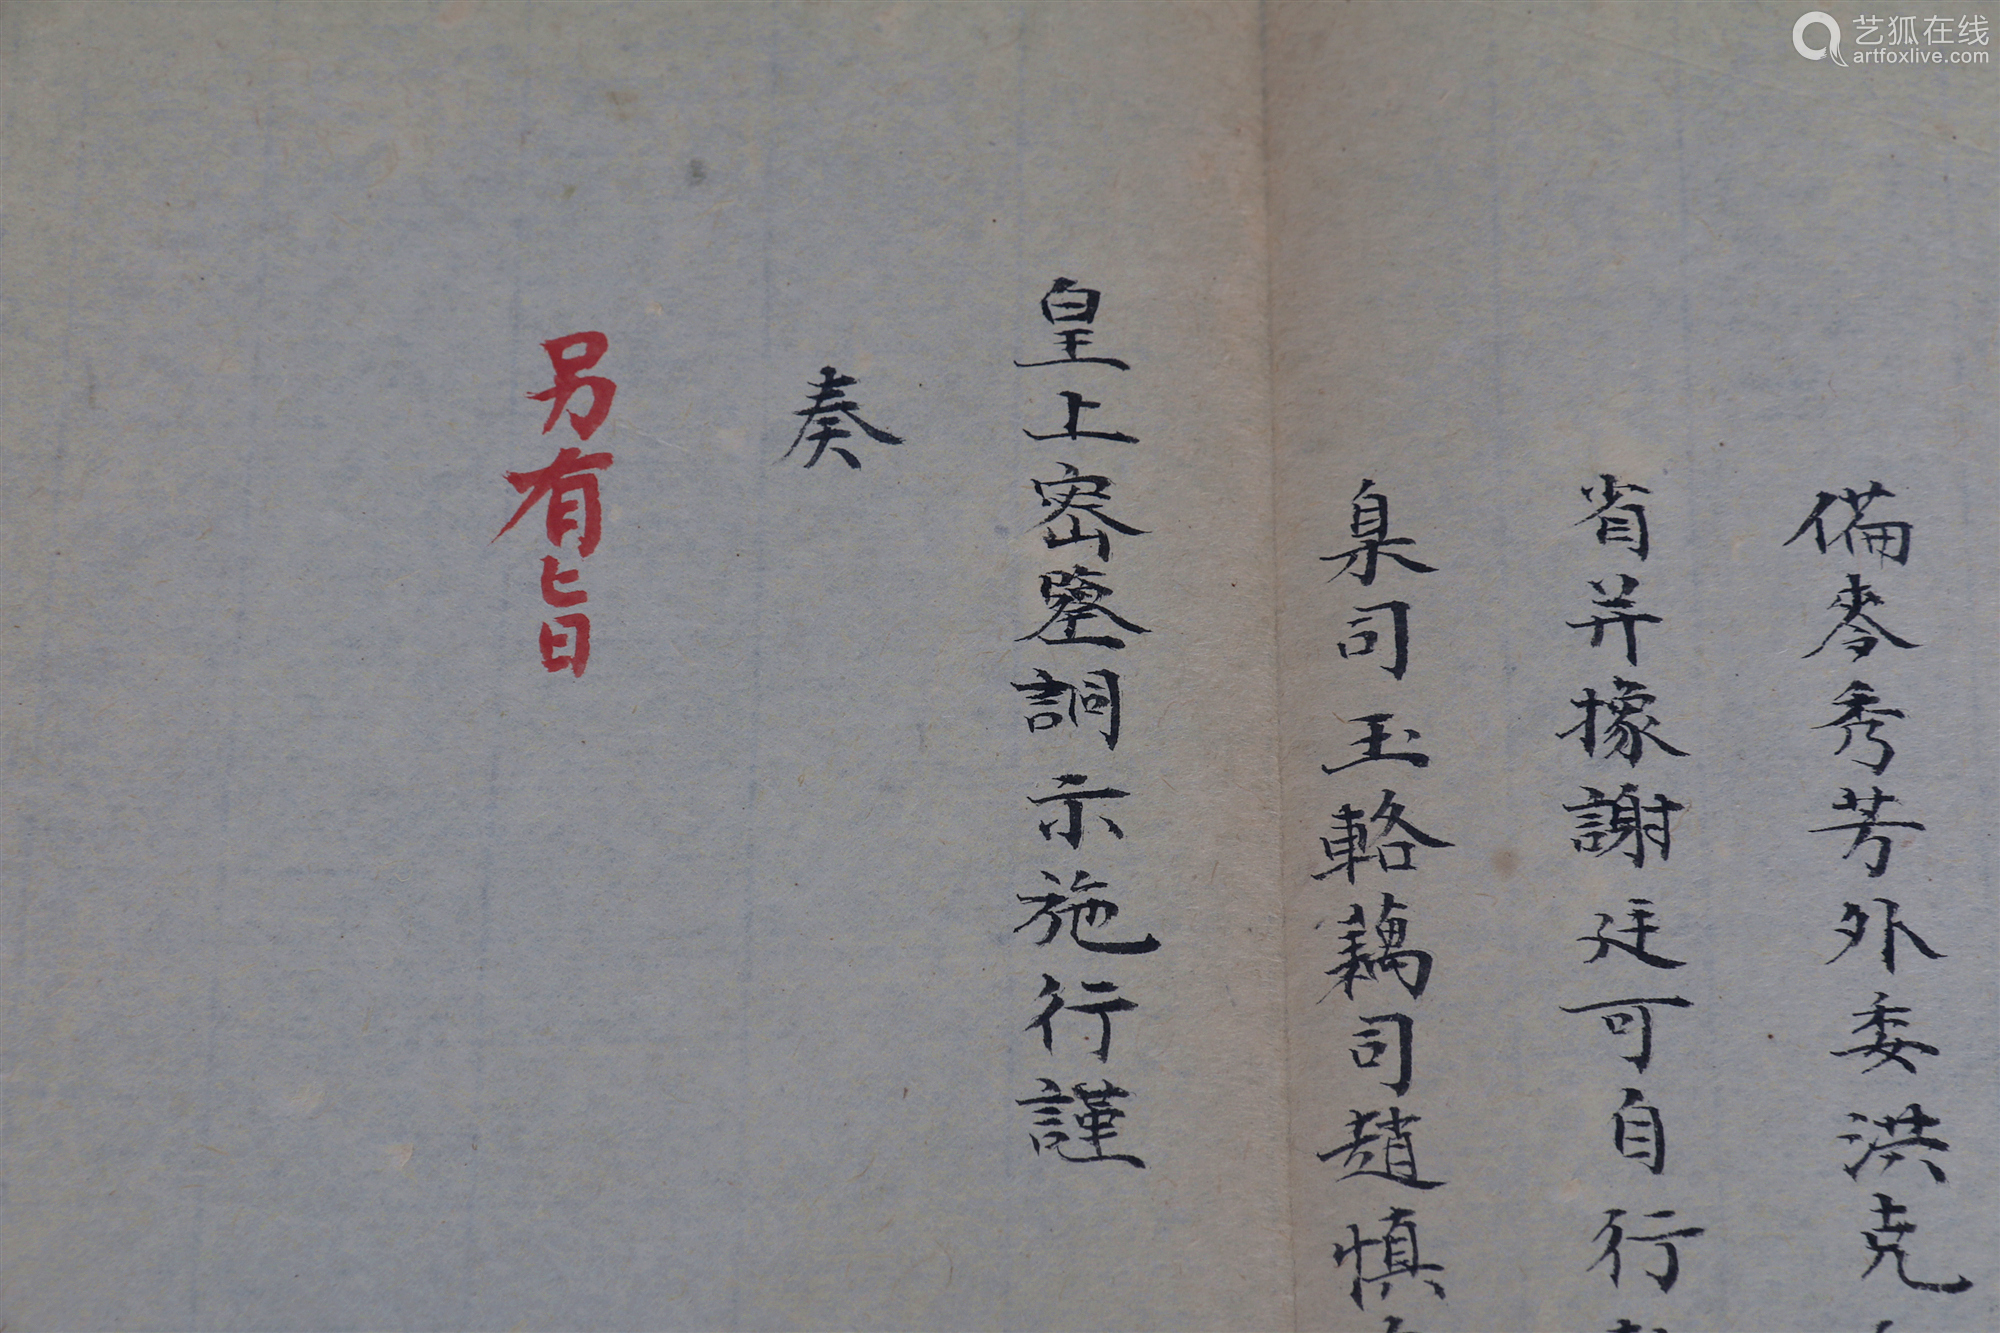 備麥秀芳外委洪尭
省并據謝廷可自行
臬司玉輅藕司趙慎
皇上密鑒詗示施行謹
奏
另有旨
艺狐在线
artfoxlive.com